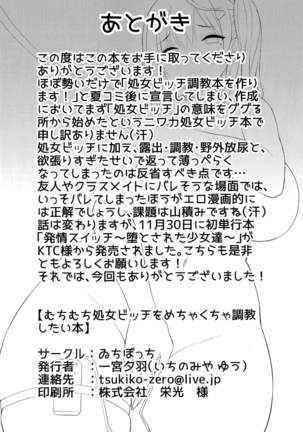 あとがき
この度はこの本をお手に取ってくださり
ありがとうございます！
ほぼ勢いだけで「処女ビッチ調教本を作り
ます！」と夏コミ後に宣言してしまい、作成
においてまず「処女ビッチ」の意味をググる
所から始めたというニワカ処女ビッチ本で
申し訳ありません(汗)
処女ビッチに加え、露出・調教・野外放尿と、
欲張りすぎたせいで返って薄っぺらく
なってしまったのは反省すべき点です…
友人やクラスメイトにバレそうな場面では、
いっそバレてしまったほうがエロ漫画的に
は正解でしょうし、課題は山積みですね(汗)
話は変わりますが、11月30日に初単行本
「発情スイッチ〜堕とされた少女達〜」が
KTC様から発売されました。こちらも是非
ともよろしくお願いします！
それでは、今回もありがとうございました！
【むちむち処女ビッチをめちゃくちゃ調教
したい本】
サークル：ゐちぼっち
発行者：一宮夕羽(いちのみや ゆう)
連絡先：tsukiko-zero@live.jp
印刷所：株式会社 栄光 様